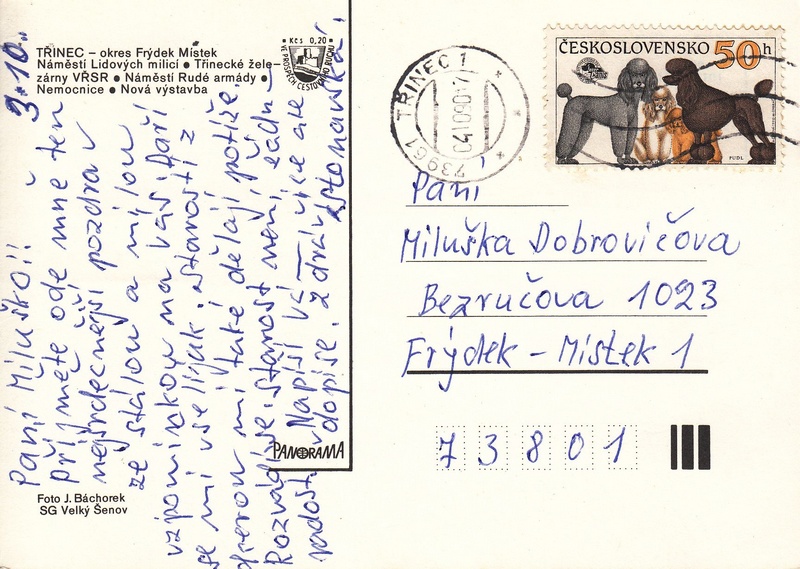 TŘINEC – okres Frýdek Místek
Náměstí Lidových milicí ● Třinecké žele-
zárny VŘSR ● Náměstí Rudé armády ●
Nemocnice ● Nová výstavba
Kčs 0,20
VE PROSPĚCH CESTOVNÍHO RUCHU
3.10.
Paní Miluško!!
Přijměte ode mne ten
nejsrdečnější pozdrav
ze stálou a milou
vzpomínkou na vás. Daří
se mi všelijak. starosti z
dcerou mi také dělají potíže.
Rozvádí se. starost není, žád-
radost. Napíší vá – více ale
v dopise. Zdraví
PANORAMA
Foto J. Báchorek
SG Velký Šenov
73961 TŘINEC 1
04.10.90-17
ČESKOSLOVENSKO 50h
PUDL
Paní
Miluška Dobrovičova
Bezručova 1023
Frýdek - Místek 1
73801